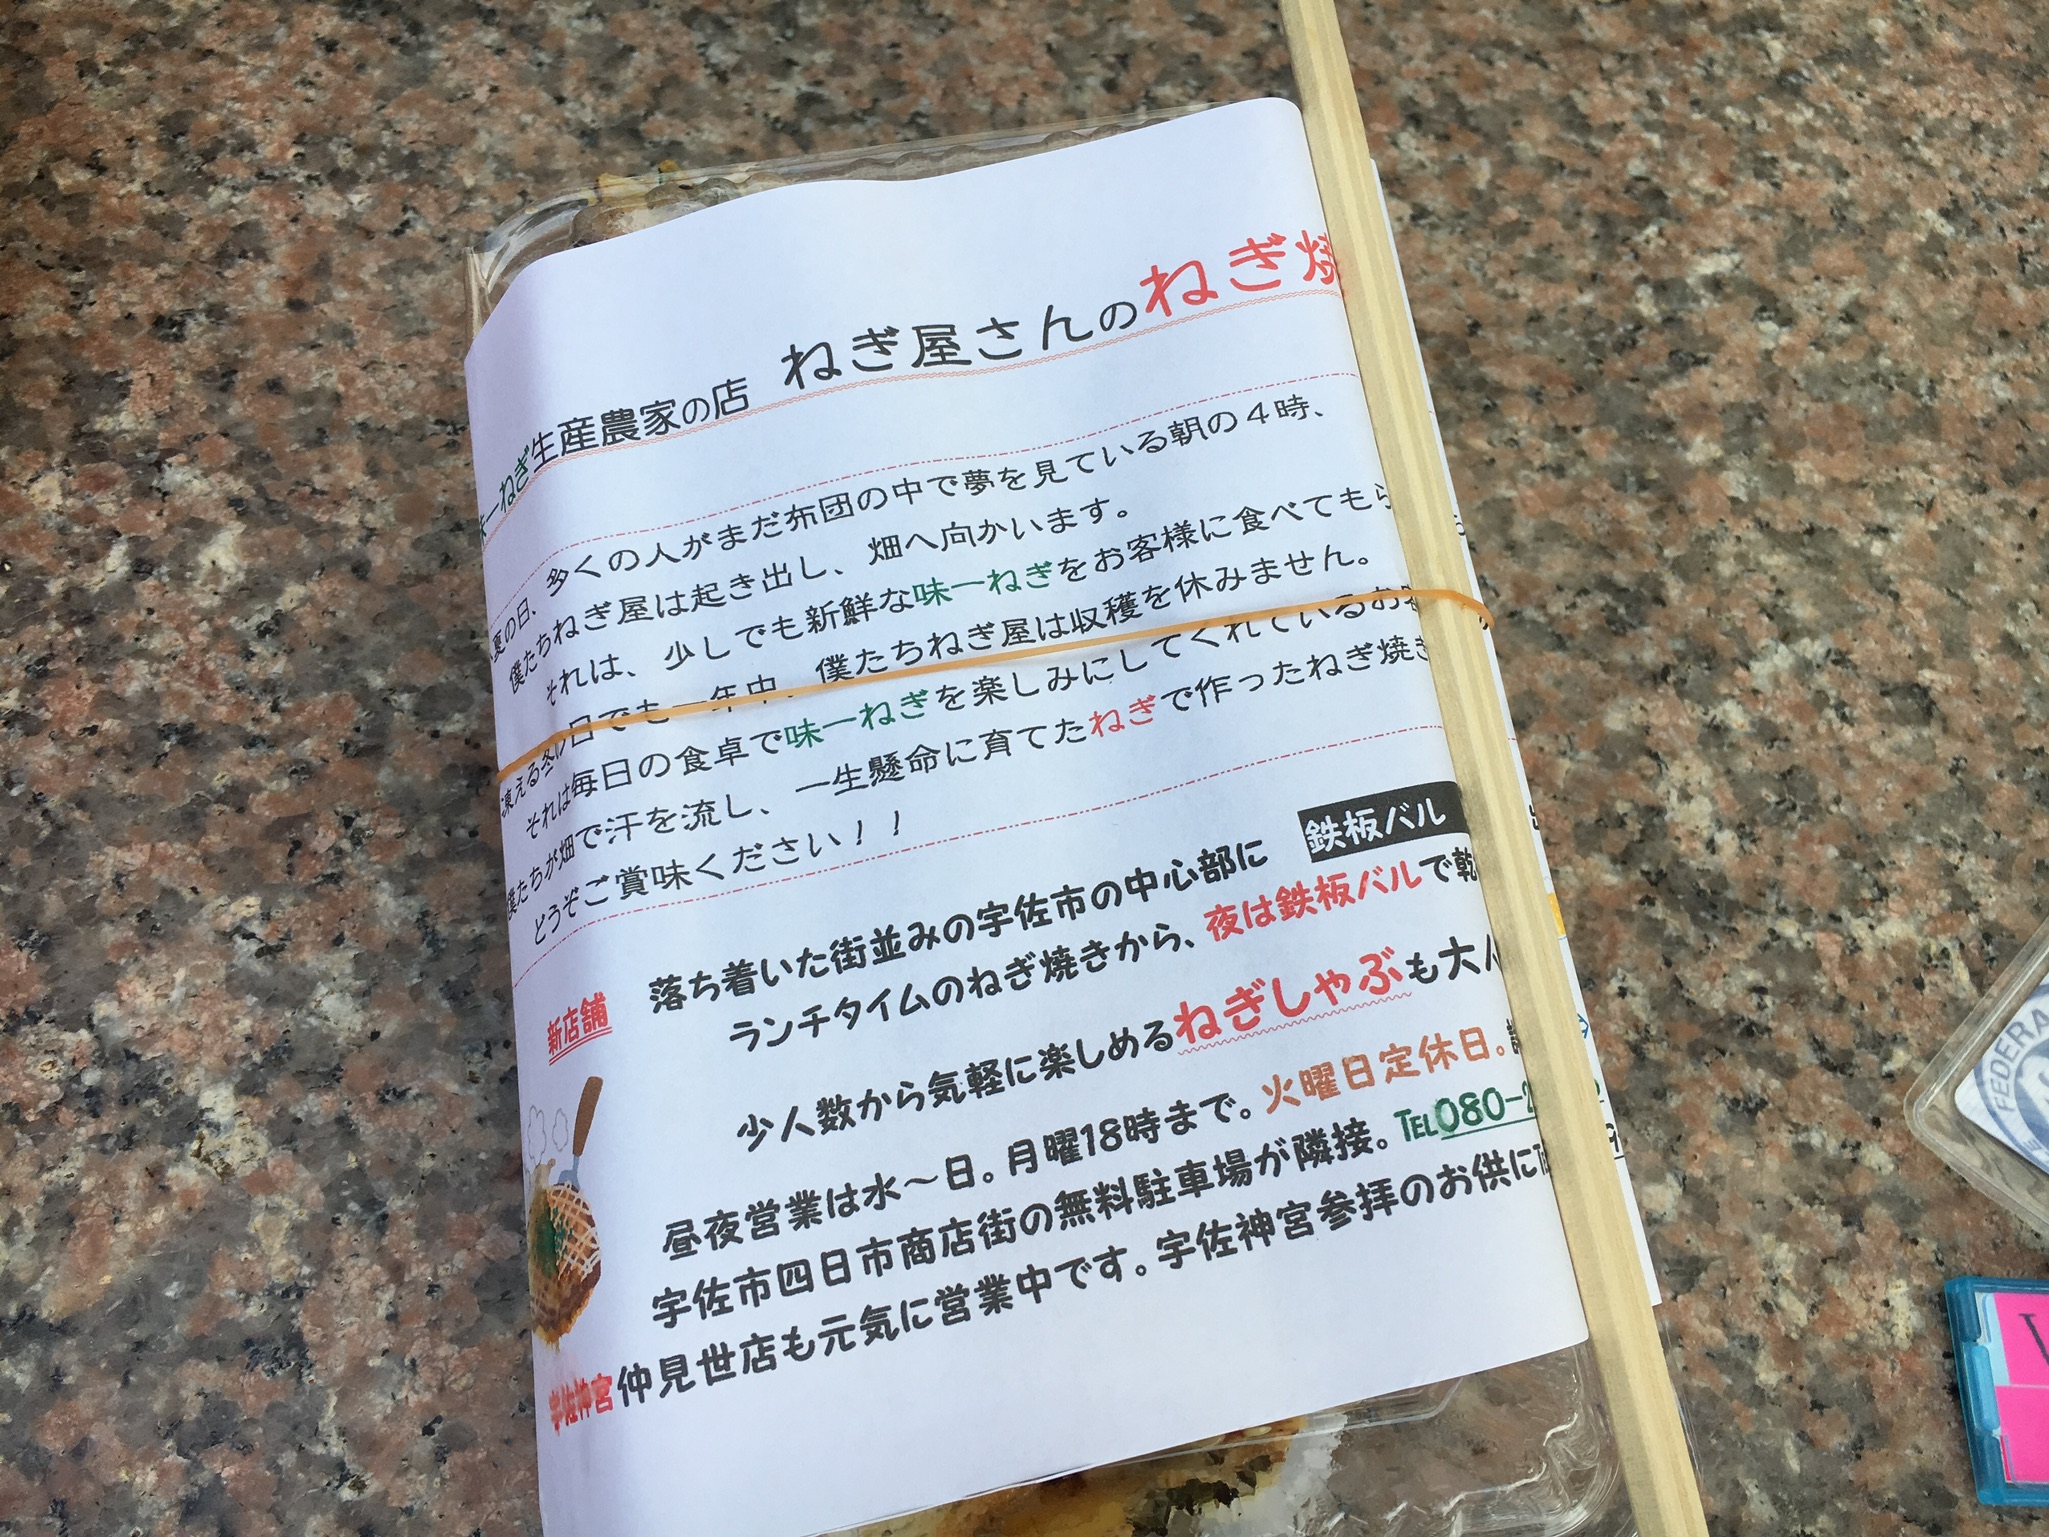 味一ねぎ生産農家の店 ねぎ屋さんのねぎ焼
夏の日、多くの人がまだ布団の中で夢を見ている朝の4時、
僕たちねぎ屋は起き出し、畑へ向かいます。
それは、少しでも新鮮な味一ねぎをお客様に食べてもら
凍える冬の日でも一年中、僕たちねぎ屋は収穫を休みません。
それは毎日の食卓で味一ねぎを楽しみにしてくれているお客
僕たちが畑で汗を流し、一生懸命に育てたねぎで作ったねぎ焼き
どうぞご賞味ください！！
新店舗 落ち着いた街並みの宇佐市の中心部に 鉄板バル
ランチタイムのねぎ焼きから、夜は鉄板バルで乾
少人数から気軽に楽しめるねぎしゃぶも大人
昼夜営業は水～日。月曜18時まで。火曜日定休日。
宇佐市四日市商店街の無料駐車場が隣接。TEL080-2
宇佐神宮仲見世店も元気に営業中です。宇佐神宮参拝のお供に
FEDERA